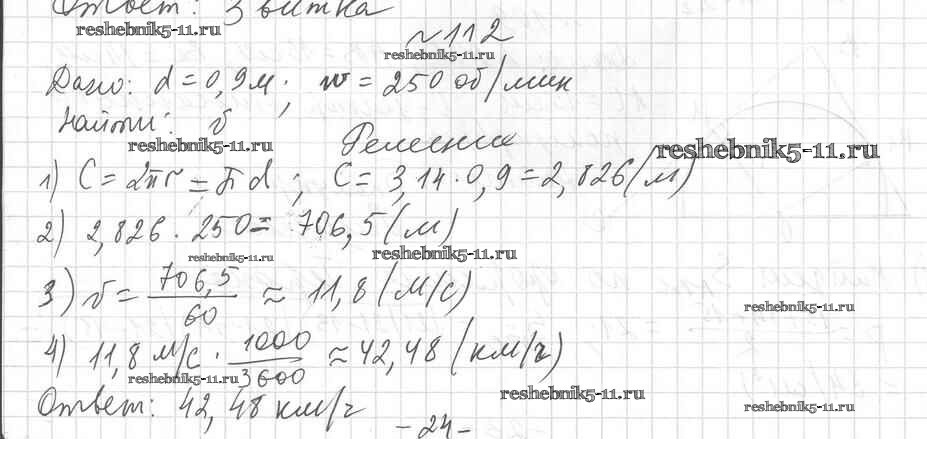 Ответ: 3 витка
reshebnik5-11.ru
~112
reshebnik5-11.ru
Дано: d = 0,9 м; w = 250 об/мин
Найти: v
reshebnik5-11.ru
Решение
reshebnik5-11.ru
1) C = 2πr = πd; C = 3,14 · 0,9 = 2,826 (м)
2) 2,826 · 250 = 706,5 (м)
reshebnik5-11.ru
reshebnik5-11.ru
3) v = 706,5/60 ≈ 11,8 (м/с)
reshebnik5-11.ru
4) 11,8 м/с · 1000/3600 ≈ 42,48 (км/ч)
reshebnik5-11.ru
reshebnik5-11.ru
reshebnik5-11.ru
Ответ: 42,48 км/ч
-24-